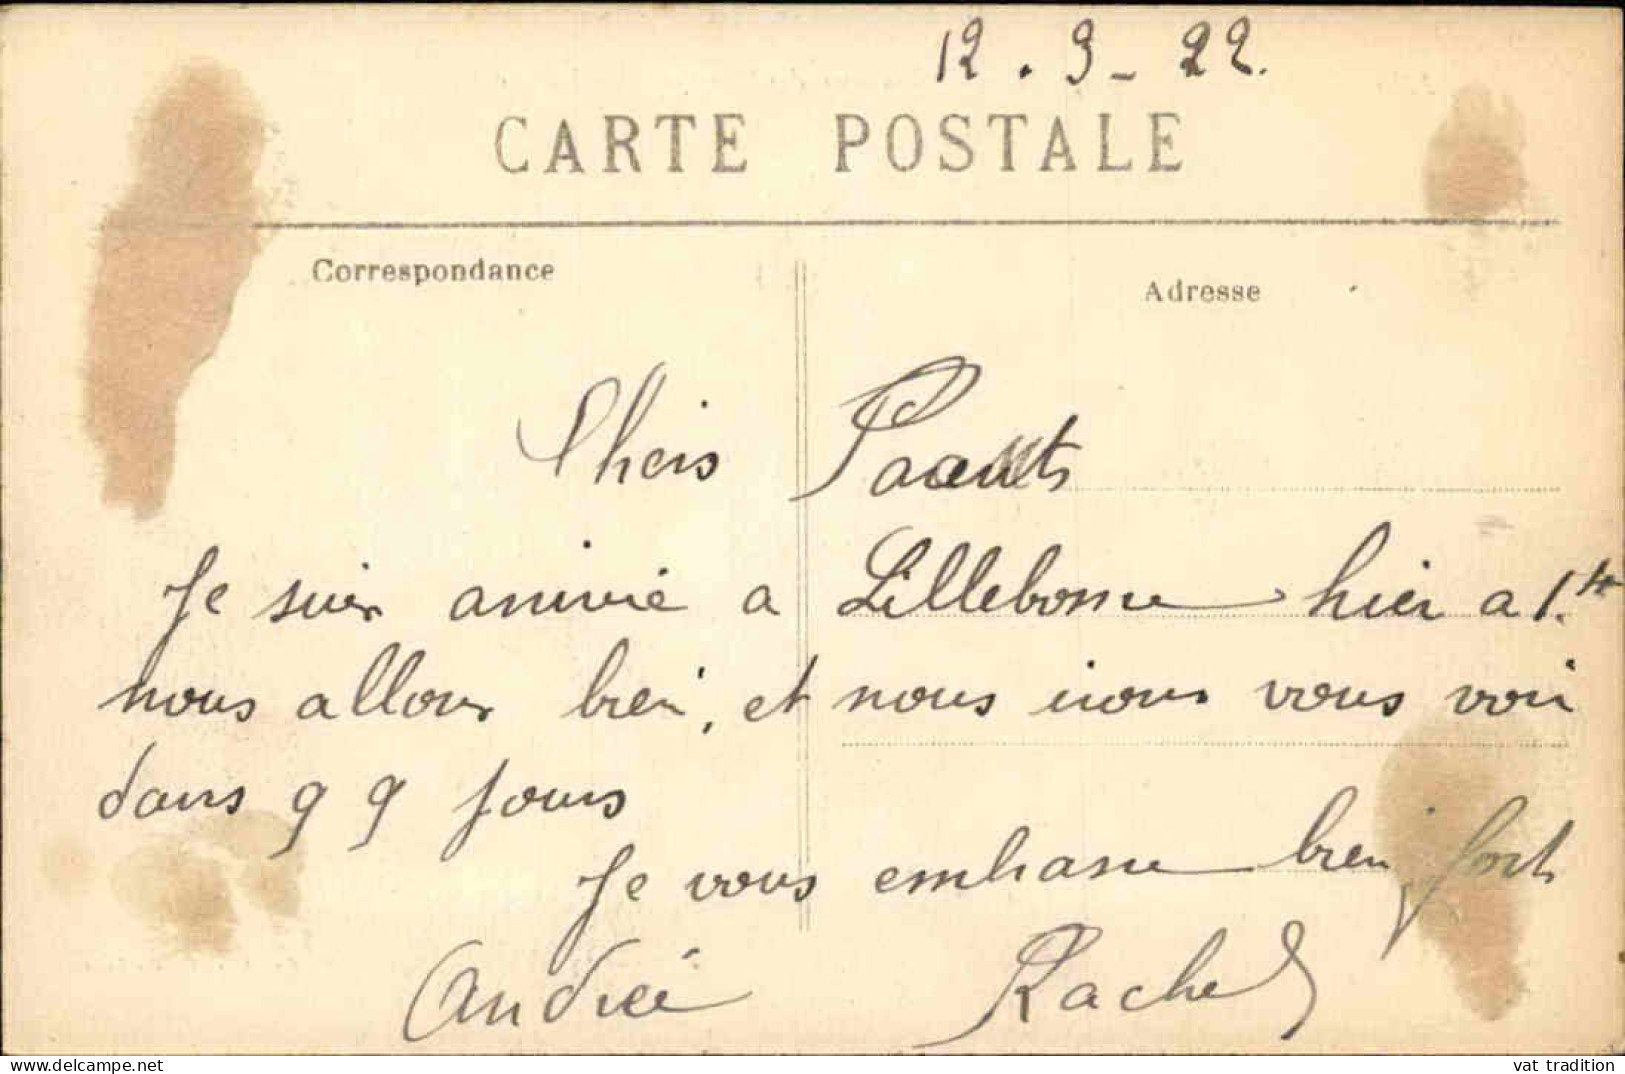 12.9-22.
CARTE POSTALE
Correspondance
Adresse
Chers Parents
Je suis arrivé a Lillebonne hier a 1.H
nous allons bien, et nous irons vous voir
dans q q jours
Je vous embrasse bien fort
André Rachel
vat tradition
www.delcampe.net